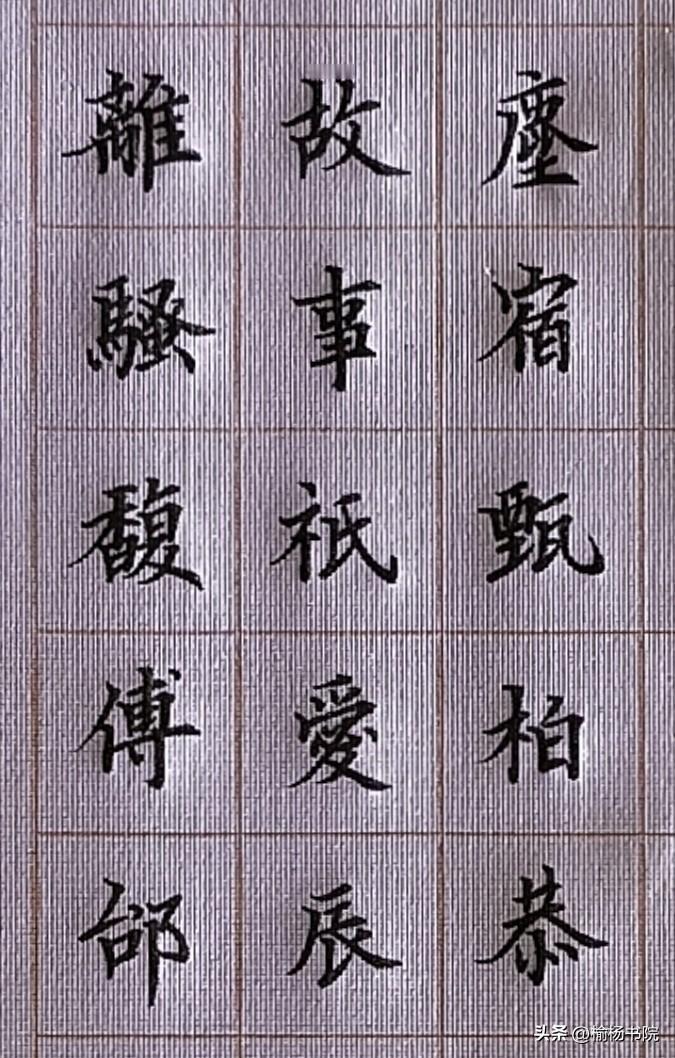 塵宿甄柏恭
故事祇愛辰
離騷馥傅邰
头条 @榆杨书院